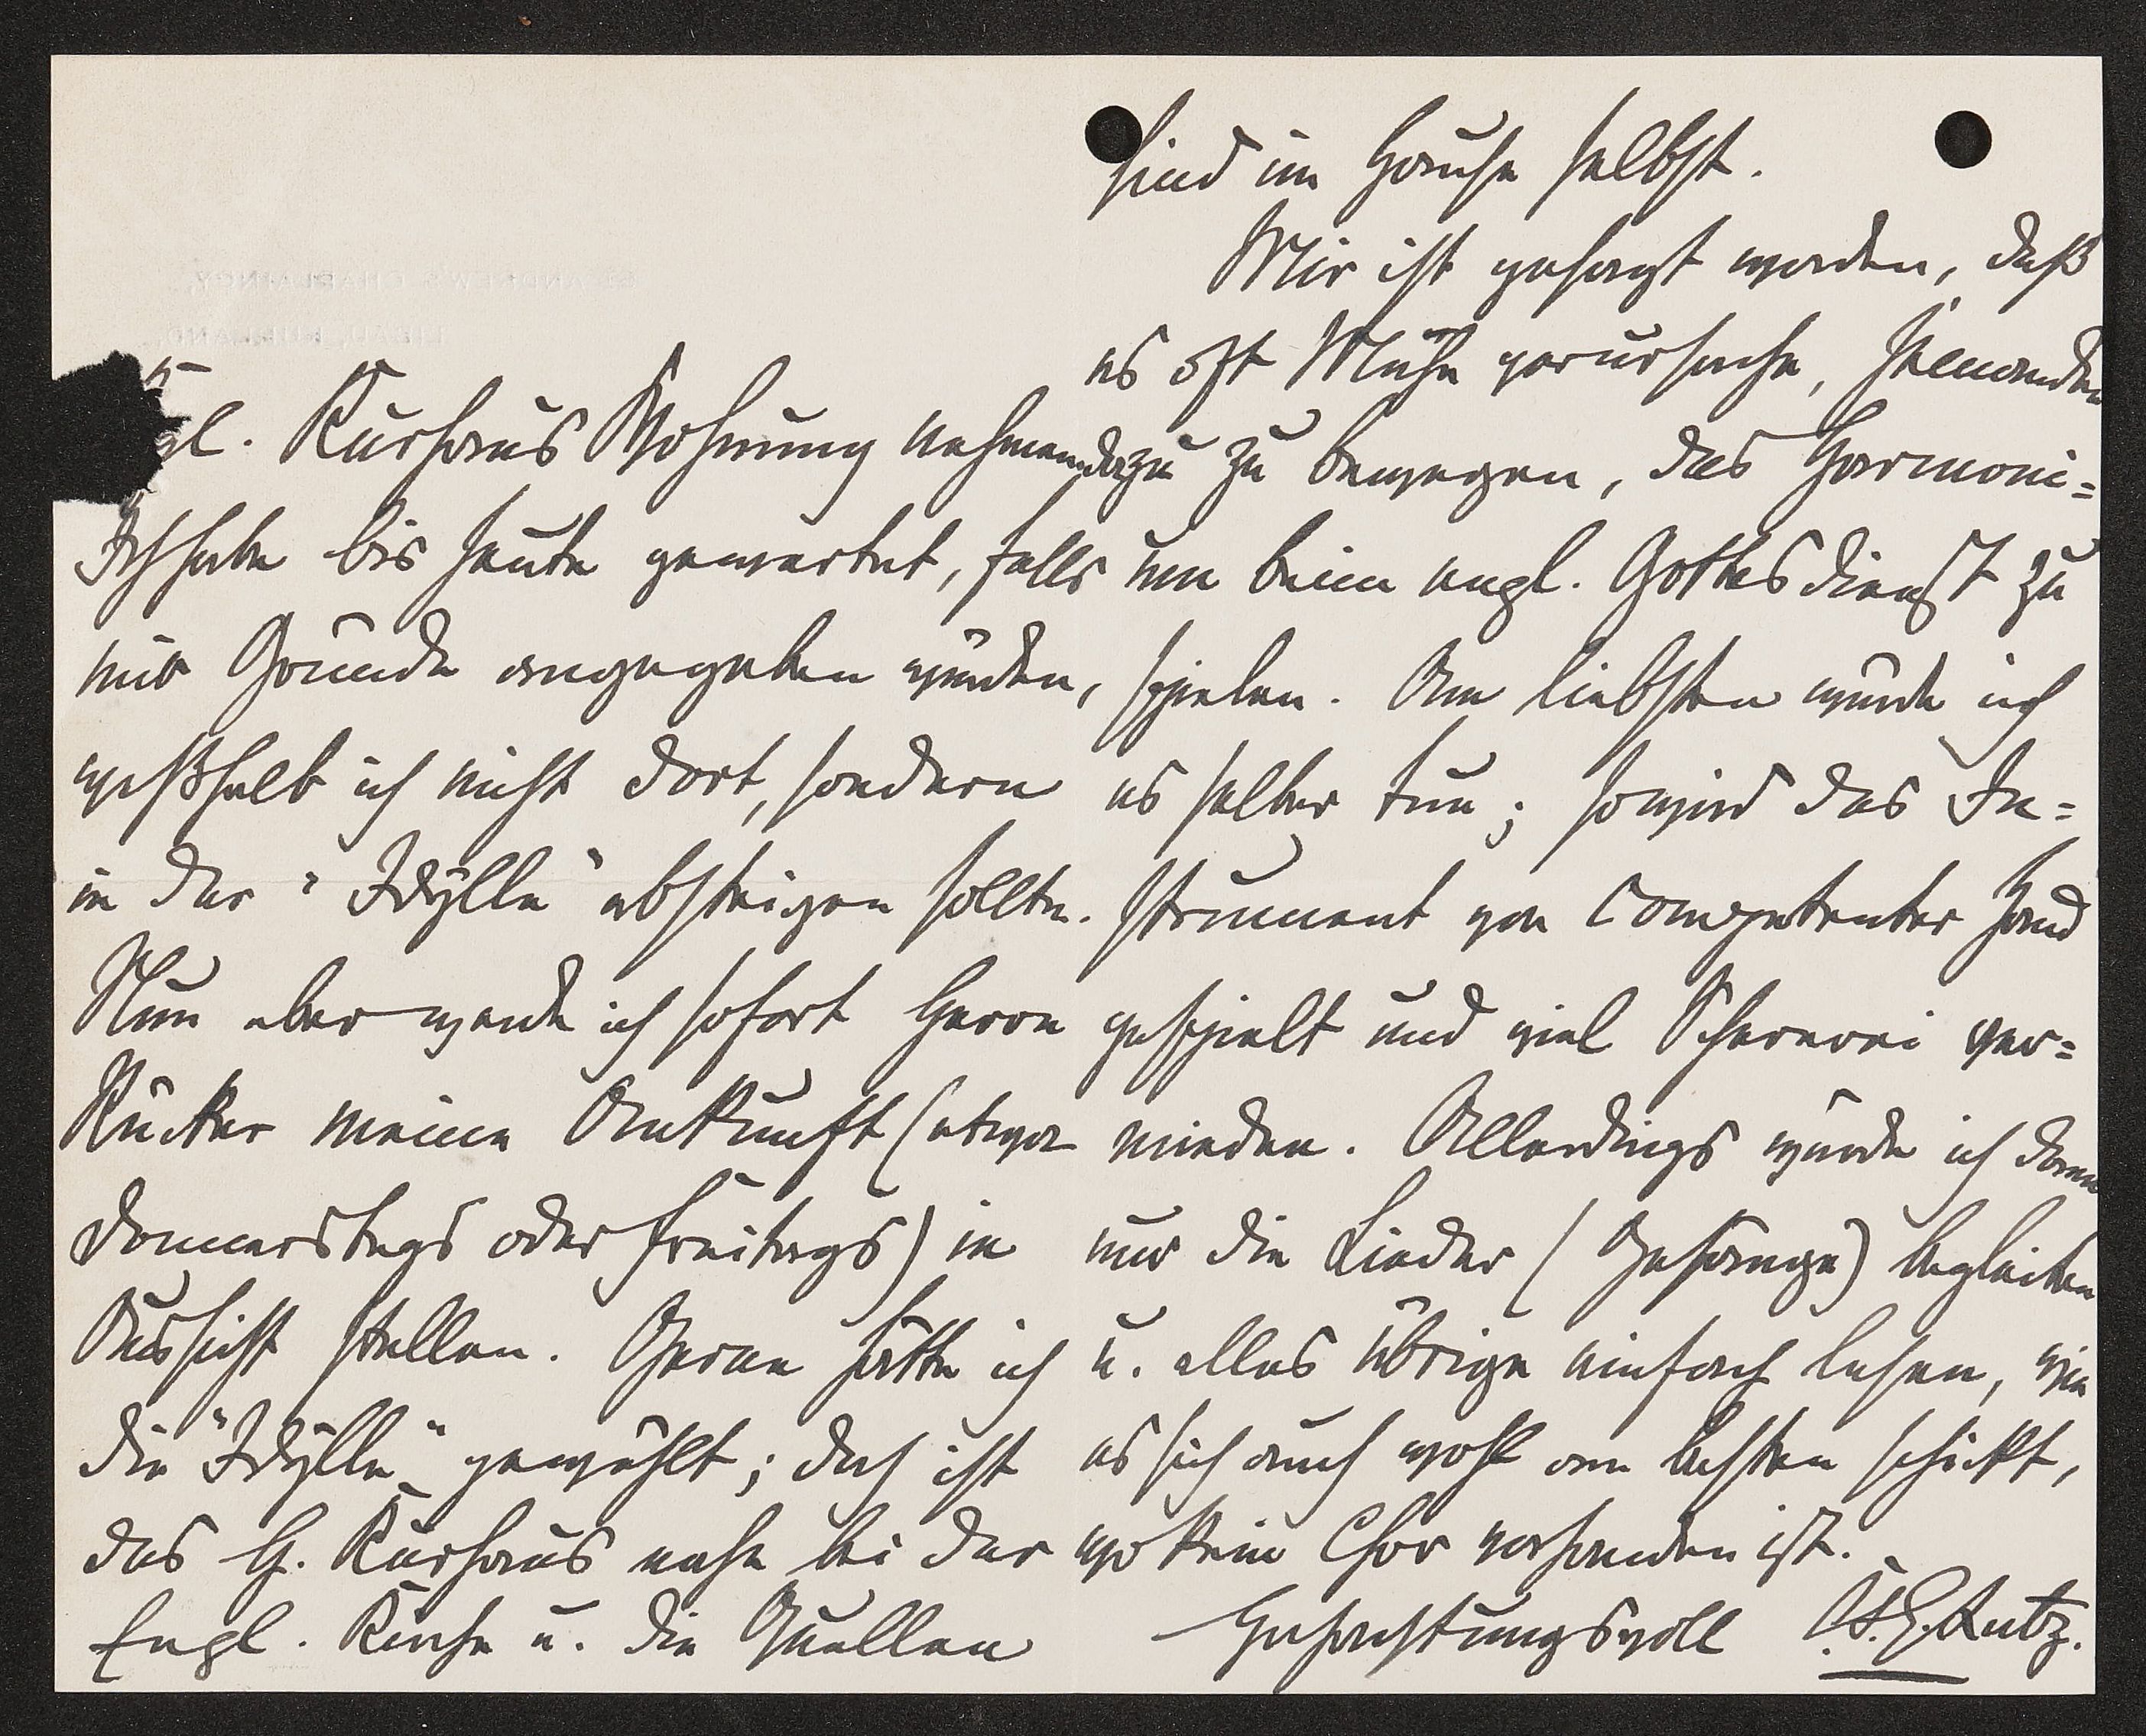 gl. Kurhaus Wohnung nehmen.
Ich habe bis heute gewartet, falls
mir Gründe angegeben würden,
weßhalb ich nicht dort, sondern
in der "Idylle" absteigen sollte.
Nun aber werde ich sofort Herrn
Rücker meine Ankunft (etwa
Donnerstags oder Freitags) in
Aussicht stellen. Gerne hätte ich
die "Idylle" gewählt; doch ist
das H. Kurhaus nahe bei der
Engl. Kirche u. die Quellen
sind im Hause selbst.
Mir ist gesagt worden, daß
es oft Mühe verursache, Jemanden
dazu zu bewegen, das Harmoni=
um beim engl. Gottesdienst zu
spielen. Am liebsten würde ich
es selber tun; so wird das In=
strument von competenter Hand
gespielt und viel Schererei ver=
mieden. Allerdings würde ich dann
nur die Lieder (Gesänge) begleiten
u. alles übrige einfach lesen, wie
es sich auch wohl am besten schickt,
wo kein Chor vorhanden ist.
Hochachtungsvoll